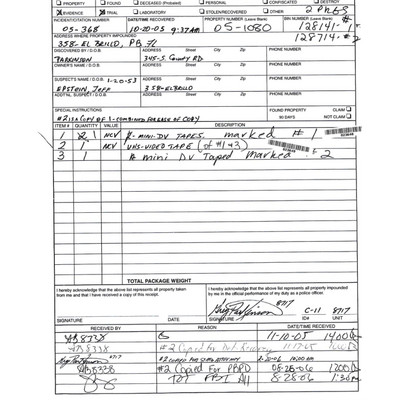 PROPERTY FOUND DECEASED (Probated) PERSONAL CONFISCATED DESTROY
EVIDENCE TRIAL LABORATORY STOLEN/RECOVERED OTHER 2 PKGS
INCIDENT/CITATION NUMBER DATE/TIME RECOVERED PROPERTY NUMBER (Leave Blank) BIN NUMBER (Leave Blank)
05-368 10-20-05 9:37AM 05-1080 128141-#1
ADDRESS WHERE PROPERTY IMPOUNDED 128714-#2
358- EL BRILLO, P.B. FL
DISCOVERED BY / D.O.B. ADDRESS PHONE NUMBER
PARKINSON 345-S. COUNTY RD
OWNER'S NAME / D.O.B. ADDRESS PHONE NUMBER
SUSPECT'S NAME / D.O.B. 1-20-53 ADDRESS PHONE NUMBER
EPSTEIN, JEFF 358-EL BRILLO
ADDT'NL. SUSPECT / D.O.B. ADDRESS PHONE NUMBER
SPECIAL INSTRUCTIONS FOUND PROPERTY CLAIM
#2 IS A COPY OF 1-COMBINED FOR EASE OF COPY 90 DAYS NOT CLAIM
ITEM # QUANTITY VALUE DESCRIPTION
1 2 1 NCV MINI-DV TAPES marked #1
2 1 NCV VHS-VIDEO TAPE (of #1 & 3)
3 1 mini DV Taped marked #2
TOTAL PACKAGE WEIGHT
I hereby acknowledge that the above list represents all property taken from me and that I received a copy of this receipt.
I hereby acknowledge that the above list represents all property impounded by me in the official performance of my duty as a police officer.
8717 C-11
SIGNATURE DATE SIGNATURE ID# UNIT
RECEIVED BY REASON DATE/TIME RECEIVED
8338 11-10-05 1400
8338 #2 Copied for 11-17-05
8717 #2
8338 #2 Copied For PBPD 08-28-06 1200
TOT FBI All 8-28-06 1:30pm